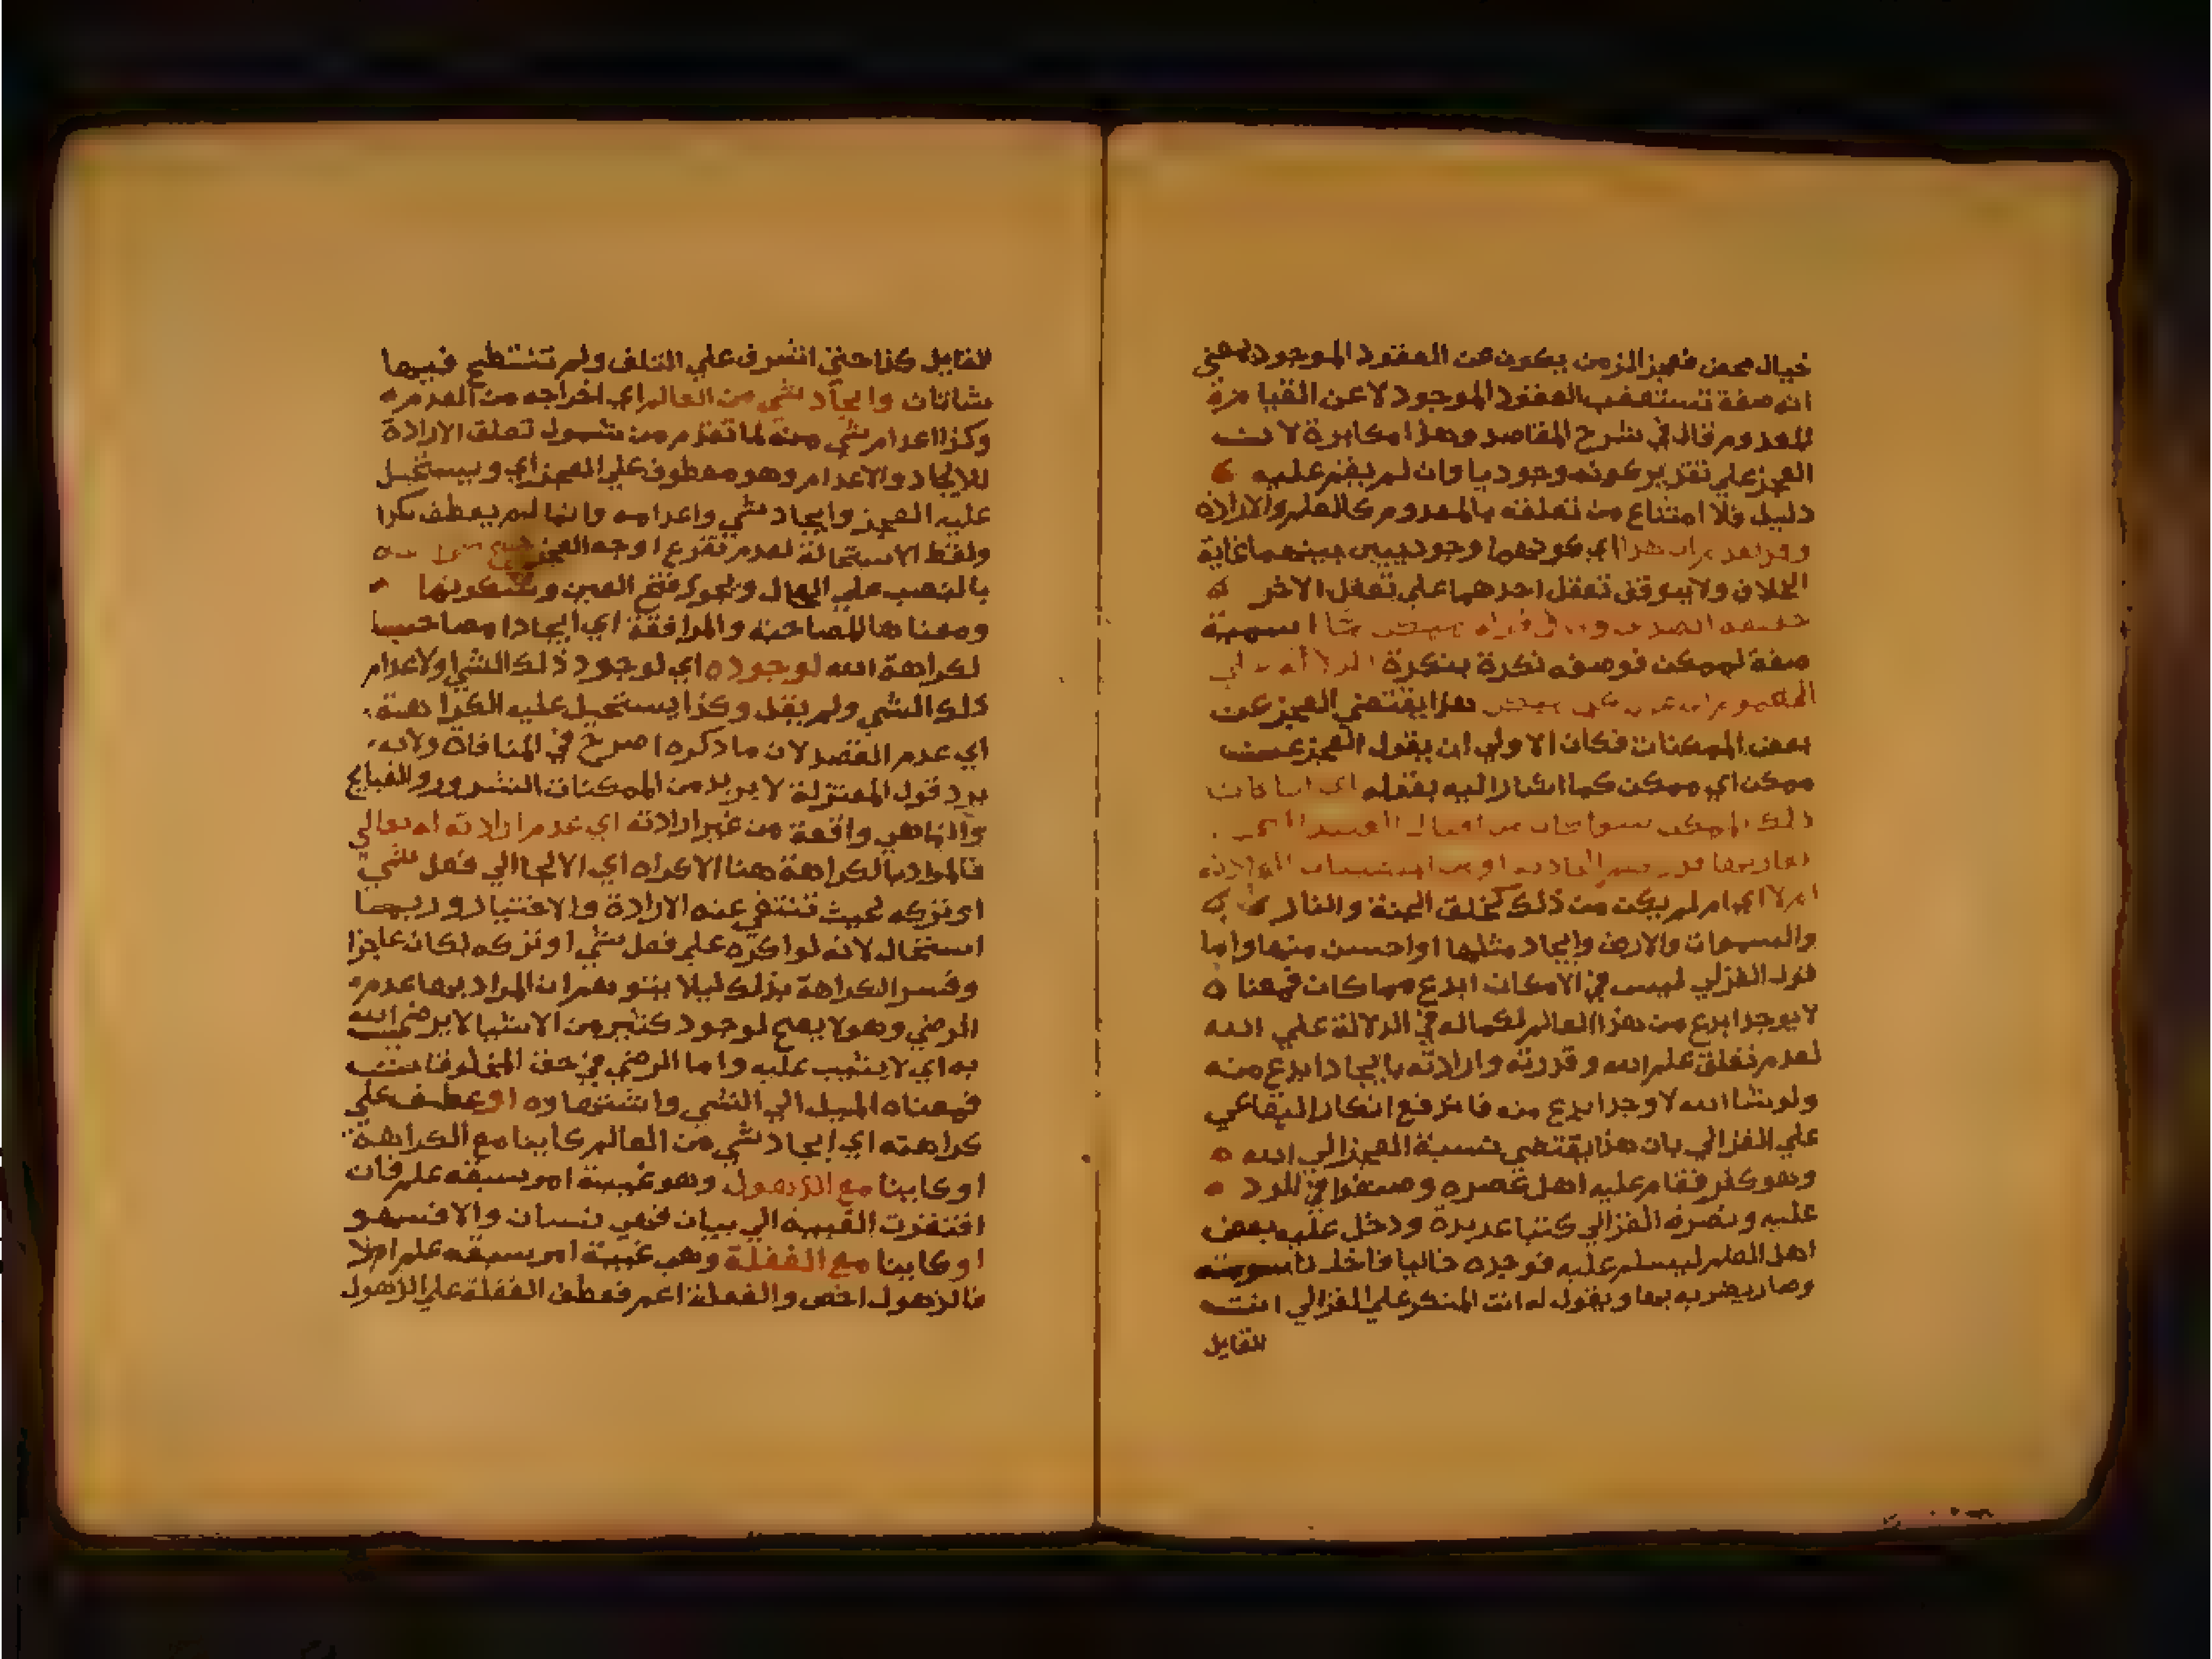 خيال محض فعجز الزمن يكون عن المفقود الموجود بمعنى
انه صفة تستعقب المفقود الموجود لا عن القيا مرة
المعدوم قال في شرح المقاصد وهذا مكابرة لانـ
العجز علي تقدير كونه وجوديا وان لم يقم عليه
دليل فلا امتناع من تعلقه بالمعدوم كالعلم والارادة
هذا اي كونهما وجوديين بينهما غاية
الخلاف ولا يتوقف تعقل احدهما علي تعقل الاخر
ما اسمية
صفة لممكن فوصفه نكرة بنكرة
هذا يقتضي العجز عن
بعض الممكنات فكان الاولي ان يقول العجز عن
ممكن اي ممكن كما اشار اليه بقوله
ذلك الممكن سوا كان من افعال
ام لا اي ام لم يكن من ذلك كخلق الجنة والنار
والسموات والارض وايجاد مثلها او احسن منها واما
قول الغزالي ليس في الامكان ابدع مما كان فمعنا ه
لا يوجد ابدع من هذا العالم لكماله في الدلالة علي الله
لعدم تعلق علم الله وقدرته وارادته بايجاد ابدع منه
ولو شا الله لاوجد ابدع منه فاندفع انكار البقاعي
علي الغزالي بان هذا يقتضي نسبة العجز الي الله
وهو كفر فقام عليه اهل عصره وصنفوا في الرد
عليه ونصرة الغزالي كتبا عديدة ودخل عليه بعض
اهل العلم ليسلم عليه فوجده خاليا فاخذ تاسومته
وصار يضربه بها ويقول له انت المنكر علي الغزالي انت
القايل
القايل كذا حتي اشرف علي التلف ولم تنتطح فيها
شاتان وايجاد شي من العالم اي اخراجه من العدم
وكذا اعدام شي منه لما تقدم من شمول تعلق الارادة
للايجاد والاعدام وهو معطوف علي العجز اي ويستحيل
عليه العجز وايجاد شي واعدامه وانما لم يعطف بكذا
ولفظ الاستحالة لعدم تفرع اوجه العجز
بالنصب علي الحال ويجوز فتح العين وسكونها
ومعناها المصاحبة والمرافقة اي ايجادا مصاحبا
لكراهة الله لوجوده اي لوجود ذلك الشي او لاعدام
ذلك الشي ولم يقل وكذا يستحيل عليه الكراهة
اي عدم القصد لان ما ذكره اصرح في المنافاة ولانه
يرد قول المعتزلة لا يريد من الممكنات الشرور والقبايح
وانما هي واقعة من غير ارادته اي عدم ارادته له تعالي
فالمراد بالكراهة هنا الاكراه اي الالجا الي فعل الشي
او تركه بحيث تنتفي عنه الارادة والاختيار وربهما
استحال لانه لو اكره علي فعل شي او تركه لكان عاجزا
وفسر الكراهة بذلك ليلا يتوهم ان المراد بها عدم
الرضي وهو لا يصح لوجود كثير من الاشيا لا يرضي الله
به اي لا يثيب عليه واما الرضي في حق المخلوقات
فمعناه الميل الي الشي واشتهاوه او عطف علي
كراهته اي ايجاد شي من العالم كاينا مع الكراهة
او كاينا مع الذهول وهو غيبة امر سبقه علم فان
افتقرت الغيبة الي بيان فهي نسيان والا فسهو
او كاينا مع الغفلة وهي غيبة امر سبقه علم ام لا
فالذهول اخص والغفلة اعم فعطف الغفلة علي الذهول